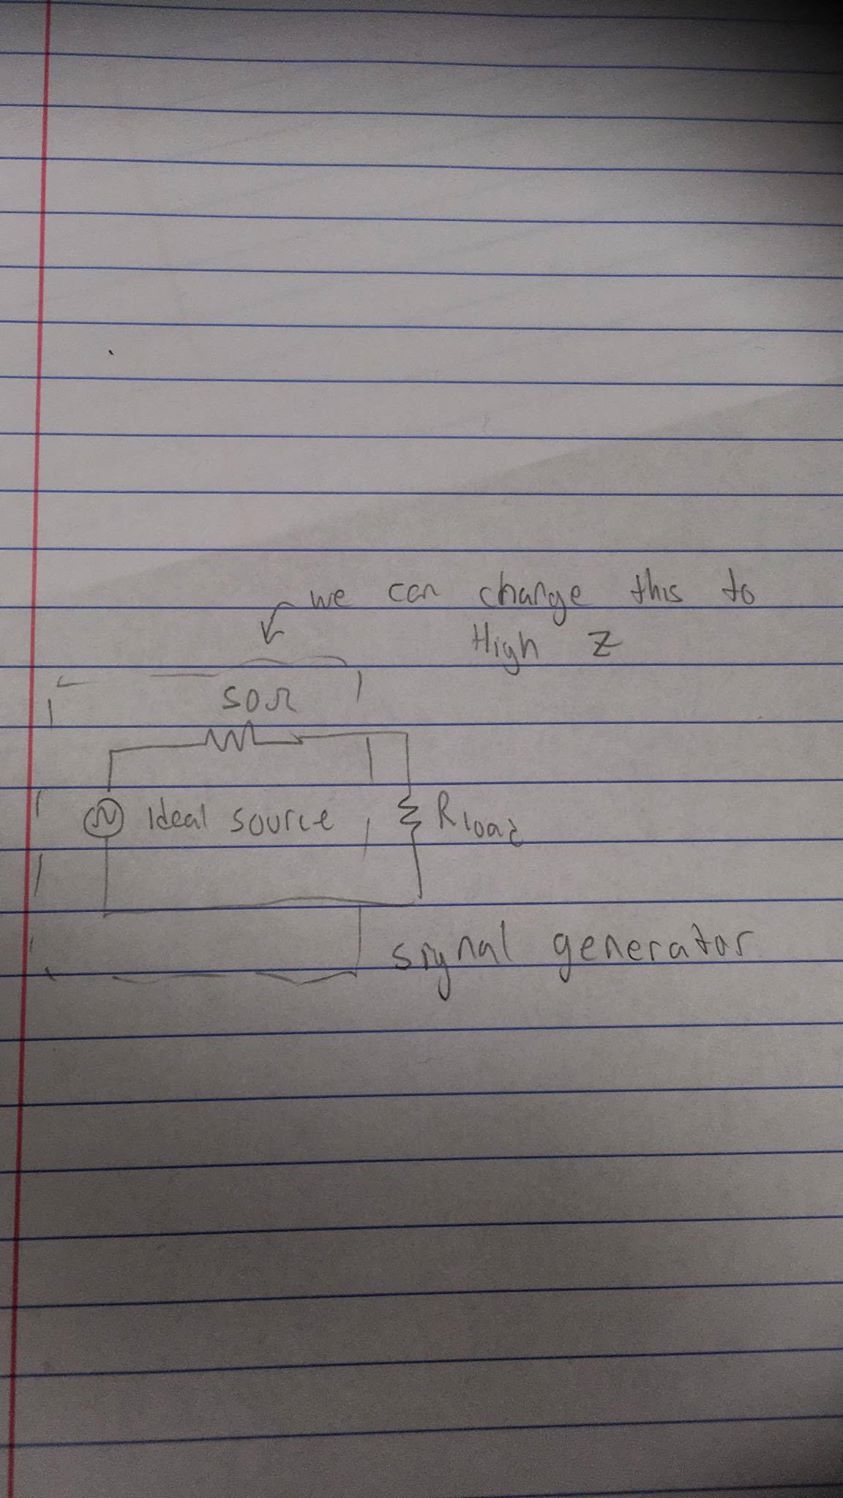 we can change this to
High Z
50Ω
Ideal source
Rload
signal generator